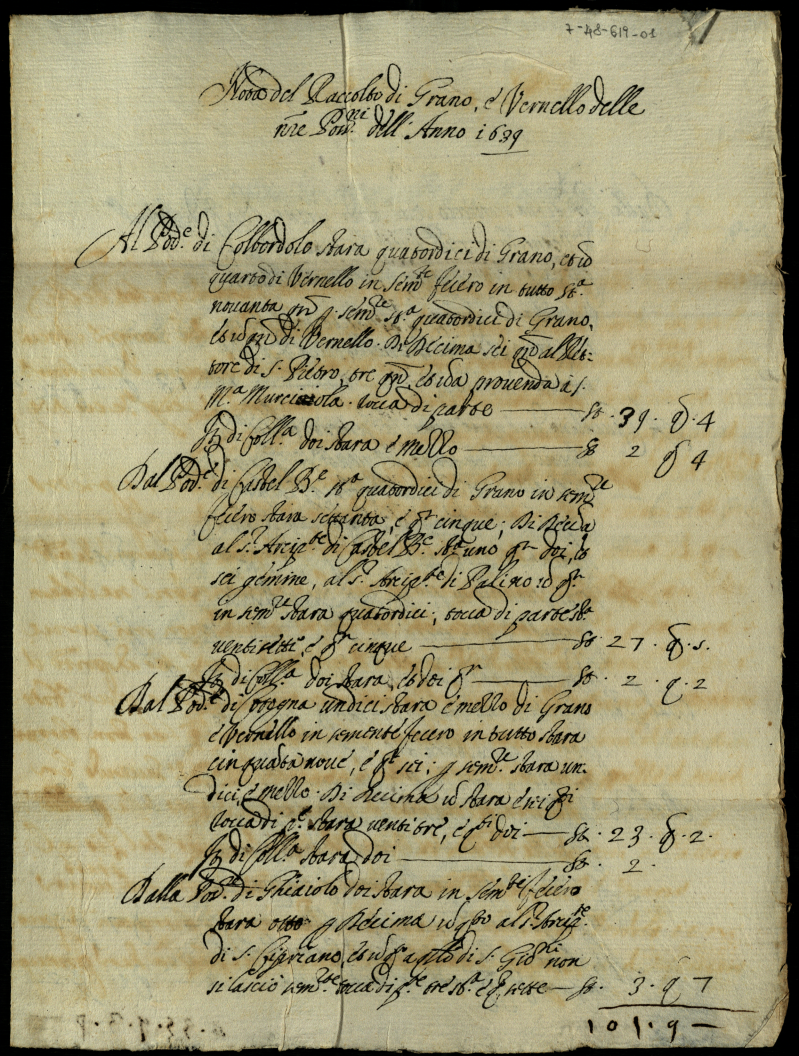 7-48-619-01
1
Nota del Raccolto di Grano, è Vernello delle
nře Pon.ni dell' Anno 1639
Al Pod.e di Colbordolo stara quatordici di Grano, et un
quarto di Vernello in sem.te fecero in tutto st.a
novanta per sem.te st.a quatordici di Grano,
di Vernello. Di Decima sei al
di S. Pietro, tre provenda à S.
M.a tocca di parte — St. 39. q 4
di Coll.a doi stara è mezzo — St 2 q 4
Dal Pod.e di Castel B.e st.a quatordici di Grano in sem.te
fecero stara settanta, è q.ti cinque; Di Decima
al S.r Arcip.te di Castel B.e St. uno q.ti doi, et
sei gemine, al S.r Arcip.te di Palino un q.to
in sem.te stara quatordici, tocca di parte st.a
ventisette è q.ti cinque — St. 27. q. 5.
di Coll.a doi stara, et doi q.ti — St. 2. q. 2
Dal Pod.e di undici stara è mezzo di Grano
è Vernello in semente fecero in tutto stara
cinquanta nove, è q.ti sei; per sem.te stara un-
dici, è mezzo. Di Decima un stara è sei q.ti
tocca di p.te stara ventitre, è q.ti doi — St. 23. q. 2.
di Coll.a stara doi — St. 2.
Dalla Pod.e di Ghiaiolo doi stara in sem.te fecero
stara otto per Decima un q.to al S.r Arcip.te
di S. Cipriano, et un q.to di S. Gio: non
si lasciò sem.te tocca di p.te tre st.a è q.ti sette — St. 3. q 7
101. q —